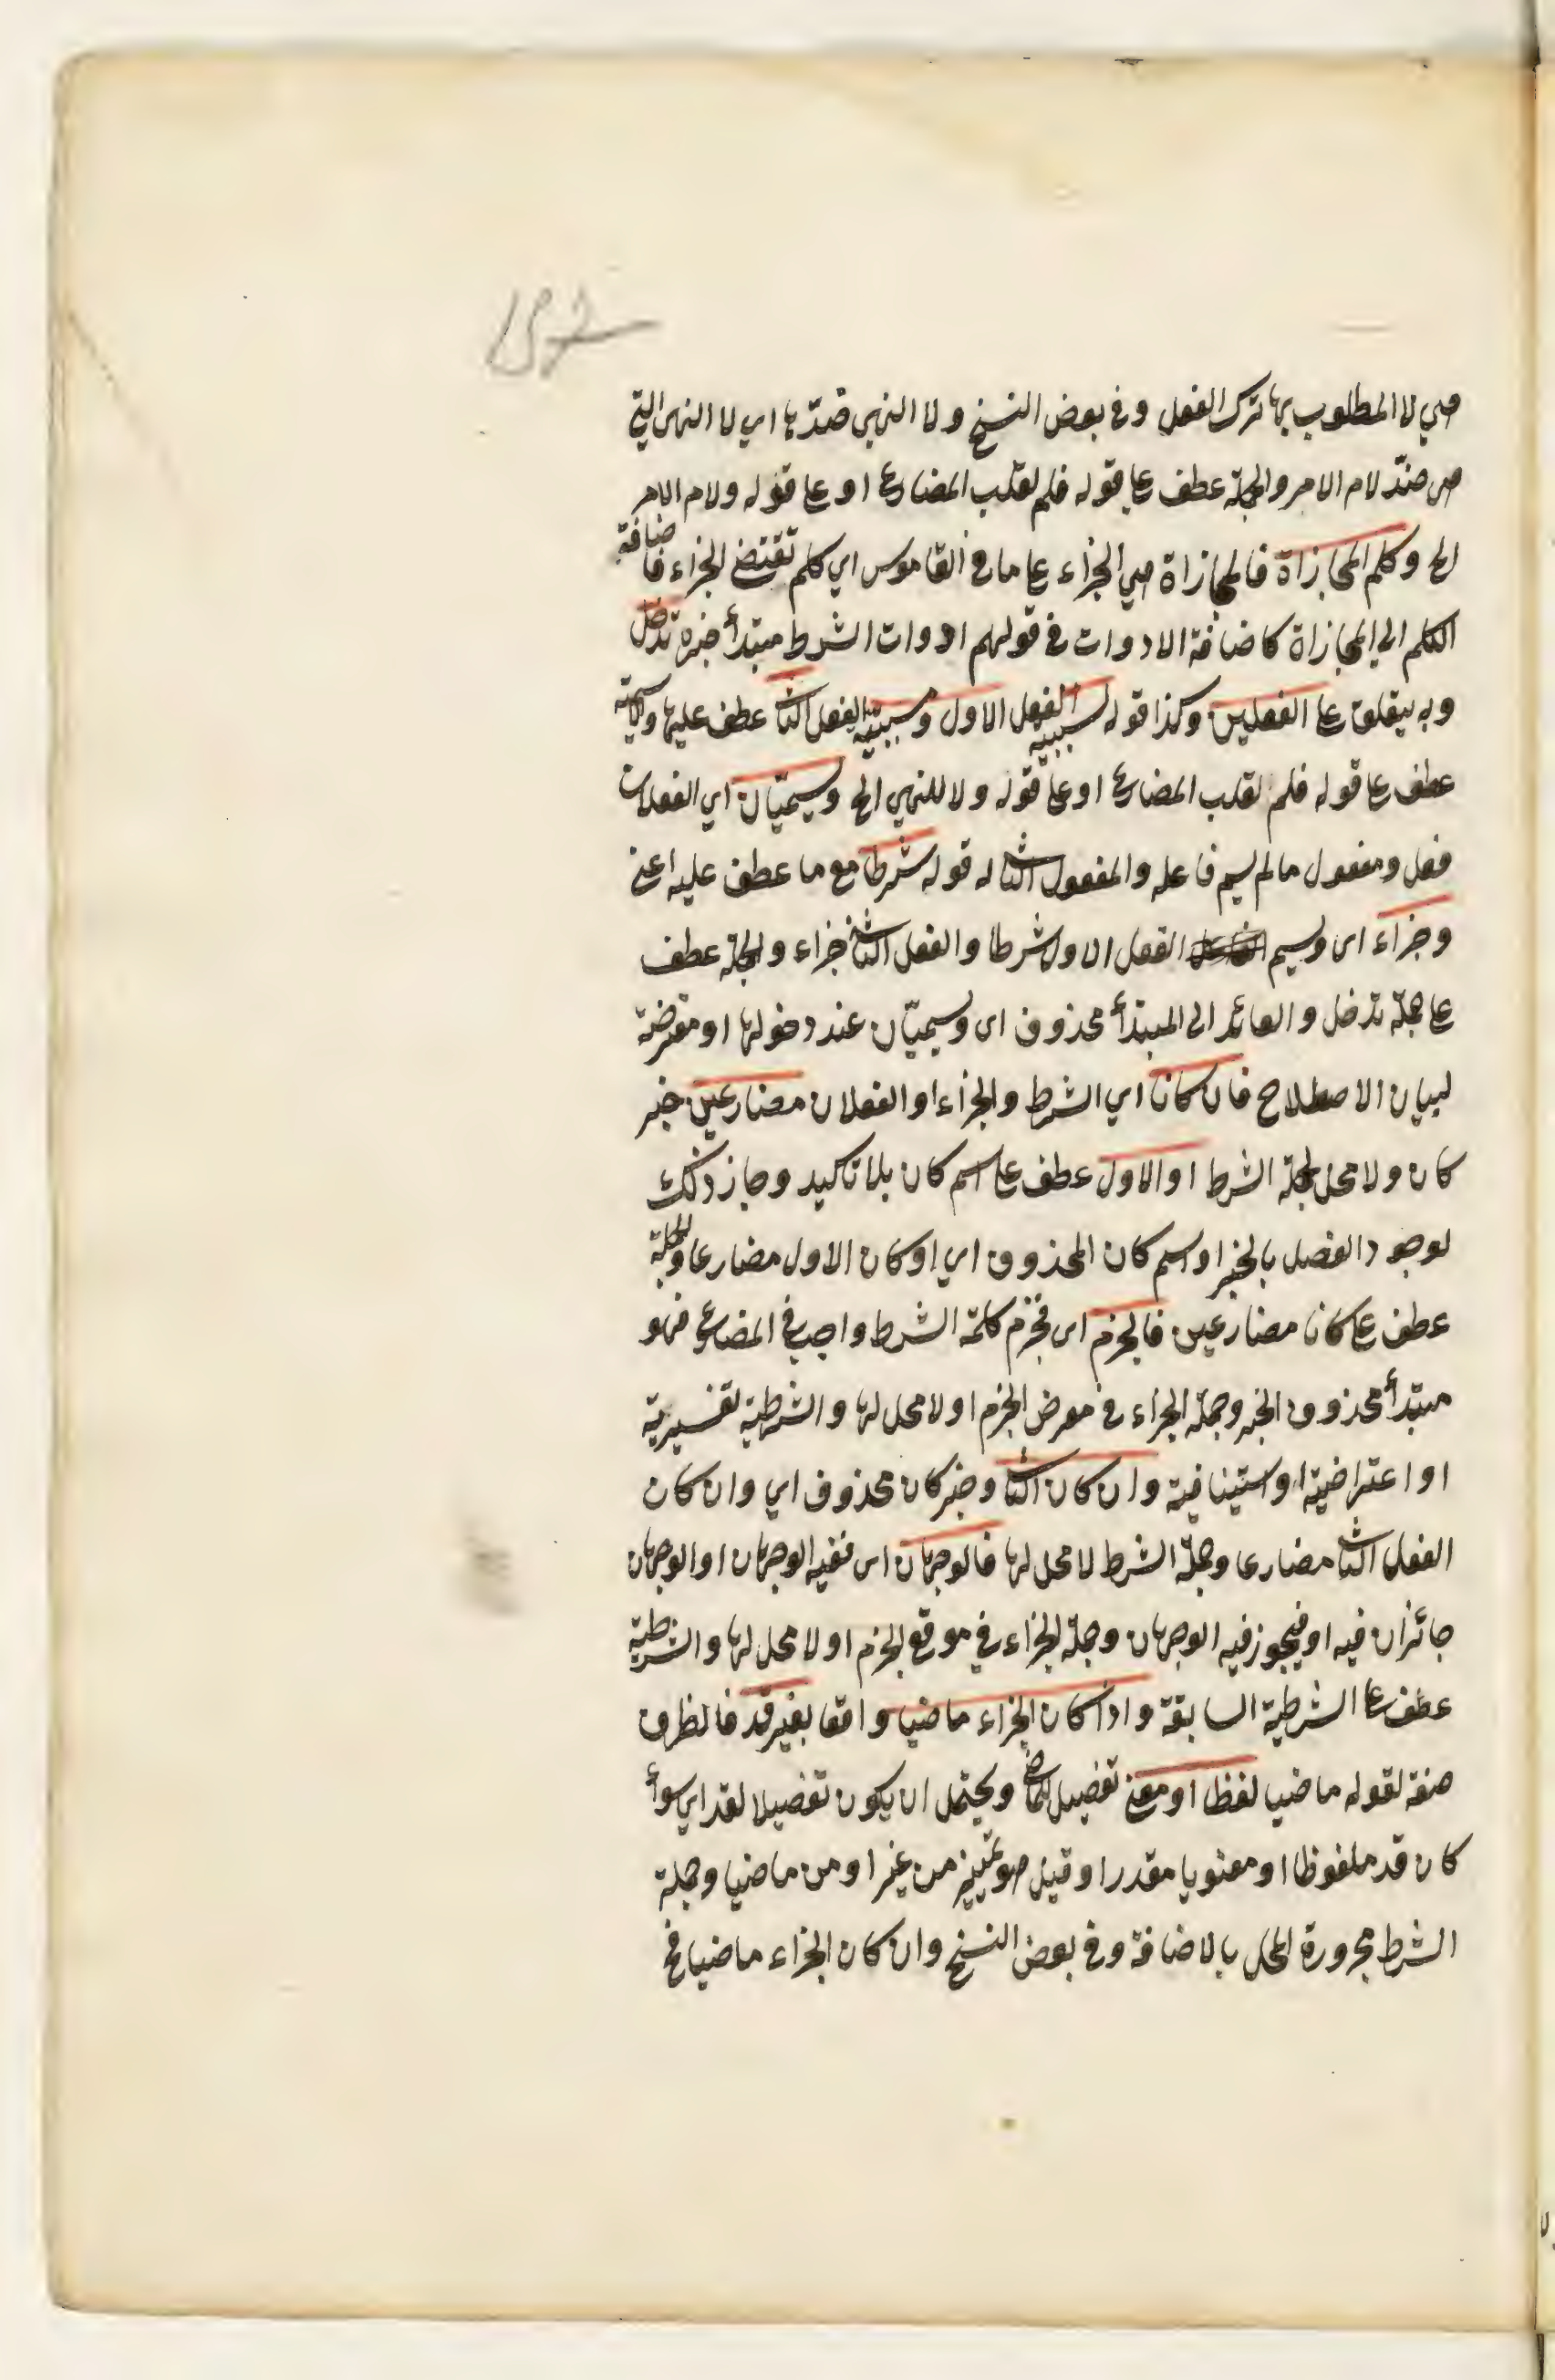 هي لا المطلوب بها ترك الفعل وفي بعض النسخ ولا النهي ضدّها اي لا النهي التي
هي ضدّ لام الامر والجملة عطف على قوله فلم لقلب المضارع او على قوله ولام الامر
الخ وكلم المجازاة فالمجازاة هي الجزاء على ما في القاموس اي كلم تقتضي الجزاء فاضافة
الكلم الى المجازاة كاضافة الادوات في قولهم ادوات الشرط مبتدأ خبره تدخل
وبه يتعلق على الفعلين وكذا قوله لسببية الفعل الاول ومسببية الفعل الثاني عطف عليها والجملة
عطف على قوله فلم لقلب المضارع او على قوله ولا للنهي الخ ويسمّيان اي الفعلان
فعل ومفعول مالم يسم فاعله والمفعول الثاني له قوله شرطا مع ما عطف عليه اعني
وجزاء اى ويسم الفعل الاول شرطا والفعل الثاني جزاء والجملة عطف
على جملة تدخل والعائد الى المبتدأ محذوف اى ويسميّان عند دخولها او معترضة
لبيان الاصطلاح فان كانا اي الشرط والجزاء او الفعلان مضارعين خبر
كان ولا محل لجملة الشرط او الاول عطف على اسم كان بلا تاكيد وجاز ذلك
لوجود الفصل بالخبر او اسم كان المحذوف اي او كان الاول مضارعا والجملة
عطف على كانا مضارعين فالجزم اى فجزم كلمة الشرط واجب في المضارع فهو
مبتدأ محذوف الخبر وجملة الجزاء في معرض الجزم او لا محل لها والشرطية تفسيرية
او اعتراضية او استينافية وان كان الثاني وخبر كان محذوف اي وان كان
الفعل الثاني مضارعا وجملة الشرط لا محل لها فالوجهان اى ففيه الوجهان او الوجهان
جائزان فيه او فيجوز فيه الوجهان وجملة الجزاء في موقع الجزم او لا محل لها والشرطية
عطف على الشرطية السابقة واذا كان الجزاء ماضيا واقعا بغير قد فالظرف
صفة لقوله ماضيا لفظا او معنى تفصيل للماضي ويحتمل ان يكون تفصيلا لقد اي سوأ
كان قد ملفوظا او معنويا مقدرا وقيل هو تمييز من غير او من ماضيا وجملة
الشرط مجرورة المحل بالاضافة وفي بعض النسخ وان كان الجزاء ماضيا فح